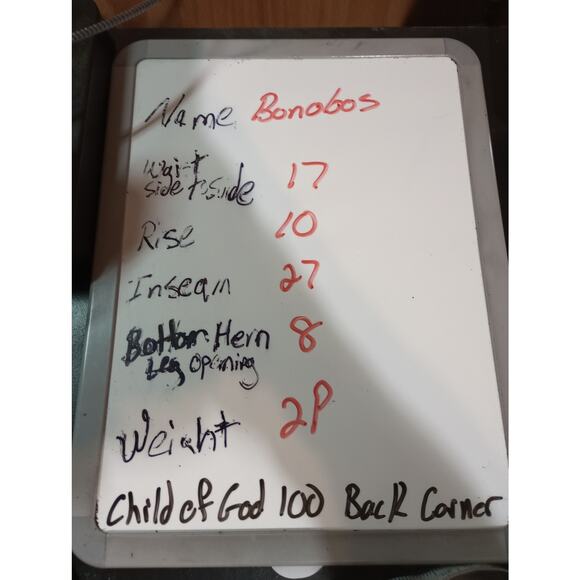 Name Bonobos
Waist
side to side 17
Rise 10
Inseam 27
Bottom Hem 8
Leg Opening
Weight 2P
Child of God 100 Back Corner